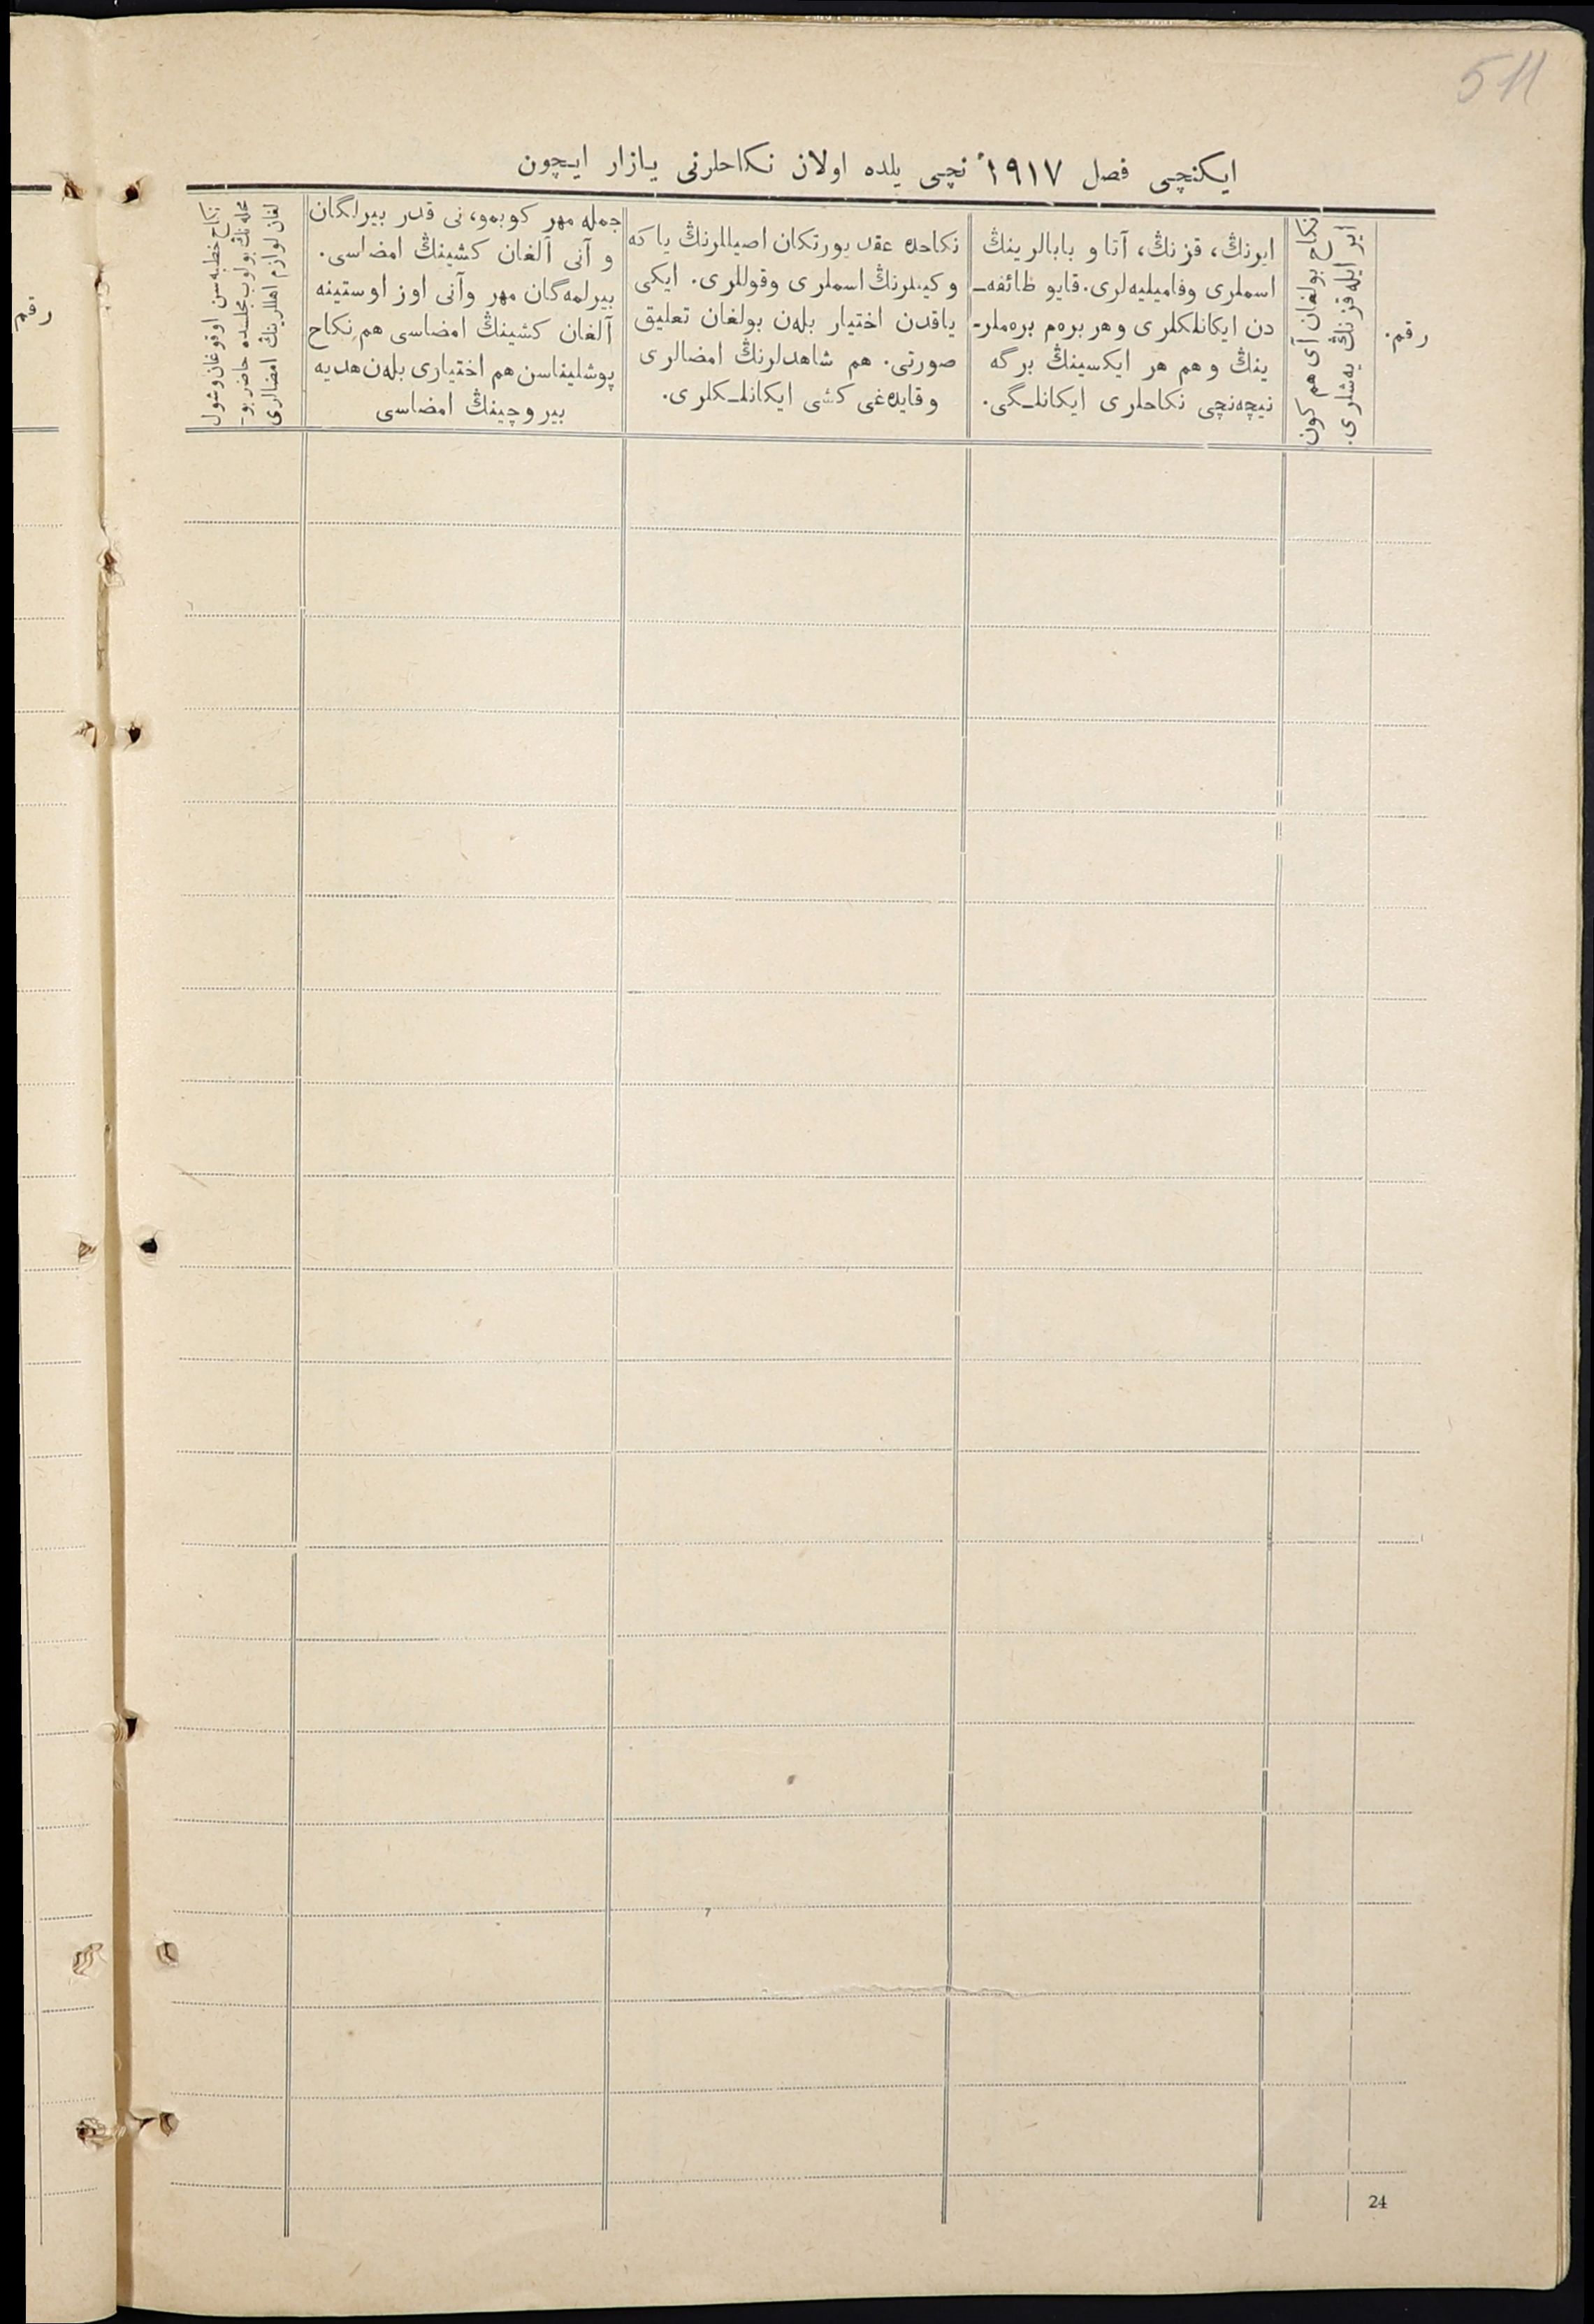 511
ایکنچی فصل ۱۹۱۷ نچی یلده اولان نکاحلرنی یازار ایچون
رقم.
ایر ایله قزنڭ یه‌شلری.
نکاح بولغان آی هم کون
ایرنڭ، قزنڭ، آتا و بابالرینڭ
اسملری وفامیلیه‌لری. قایو طائفه‌ـ
دن ایکانلکلری و هر بره‌م بره‌ملر-
ینڭ و هم هر ایکسینڭ برگه
نیچه‌نچی نکاحلری ایکانلـگی.
نکاحده عقد یورتکان اصیاللرنڭ یا که
وکیللرنڭ اسملری وقوللری. ایکی
یاقدن اختیار بله‌ن بولغان تعلیق
صورتی. هم شاهدلرنڭ امضالری
و قایده‌غی کشی ایکانلـکلری.
جمله مهر کوبمو، نی قدر بیرلگان
و آنی آلغان کشینڭ امضاسی.
بیرلمه‌گان مهر وآنی اوز اوستینه
آلغان کشینڭ امضاسی هم نکاح
پوشلیناسن هم اختیاری بله‌ن هدیه
بیروچینڭ امضاسی
نکاح خطبه‌سن اوقوغان وشول
محله‌نڭ بولوب مجلسده حاضر بو-
لغان لوازم اهللرینڭ امضالری
رقم
24